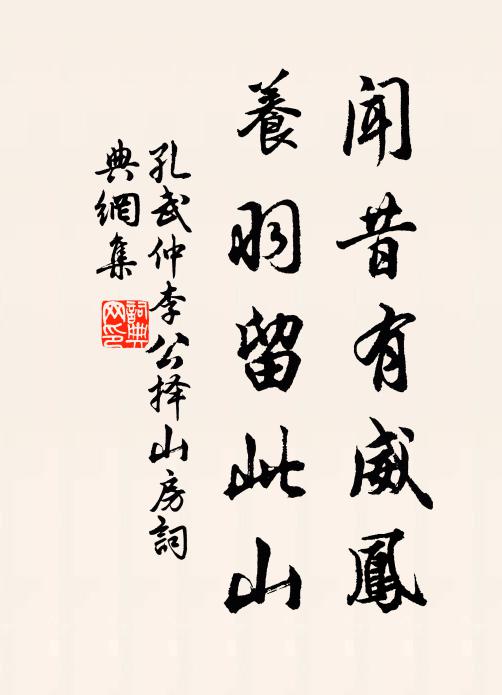 聞昔有威鳳
養羽留此山
孔武仲李公择山房詞
典網集
詞典網印